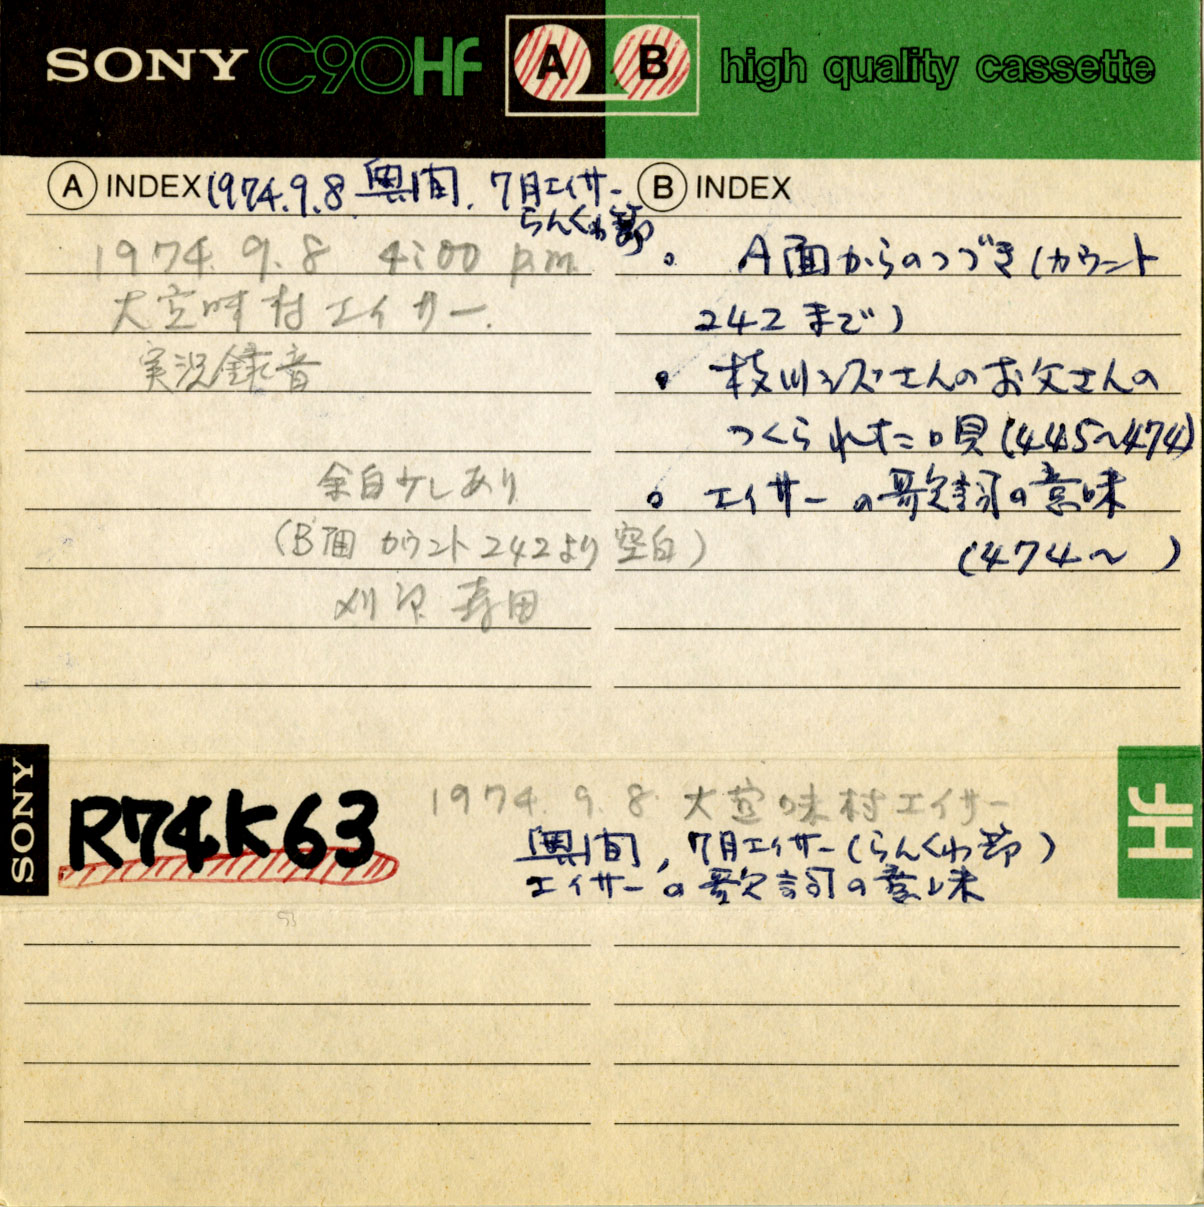 SONY C90HF A B high quality cassette
A INDEX 1974.9.8 與間. 7月エイサー
らんくわ節
1974. 9. 8 4:00 p.m.
大宜味村エイサー.
実況録音
余白ケレあり
(B面 カウント242より空白)
B INDEX
• A面からのつづき(カウント
242まで)
• 枝川シズさんのお父さんの
つくられた唄(445〜474)
• エイサーの歌詞の意味
(474〜 )
SONY
R74K63
1974. 9. 8. 大宜味村エイサー
與間, 7月エイサー(らんくわ節)
エイサーの歌詞の意味
HF